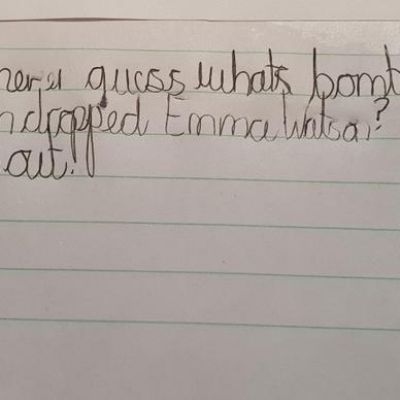 guess whats bomb
dropped Emma Watson?
out!